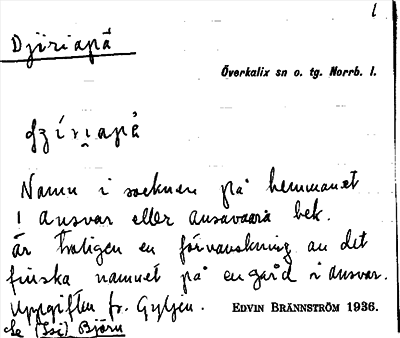 1
Djiriapå
Överkalix sn o. tg. Norrb. l.
Namn i socknen på hemmanet
1 Ansvar eller Ansavaara bek.
är troligen en förvanskning av det
finska namnet på en gård i Ansvar.
Uppgiften fr. Gyljen. EDVIN BRÄNNSTRÖM 1936.
Se (Isi) Björn